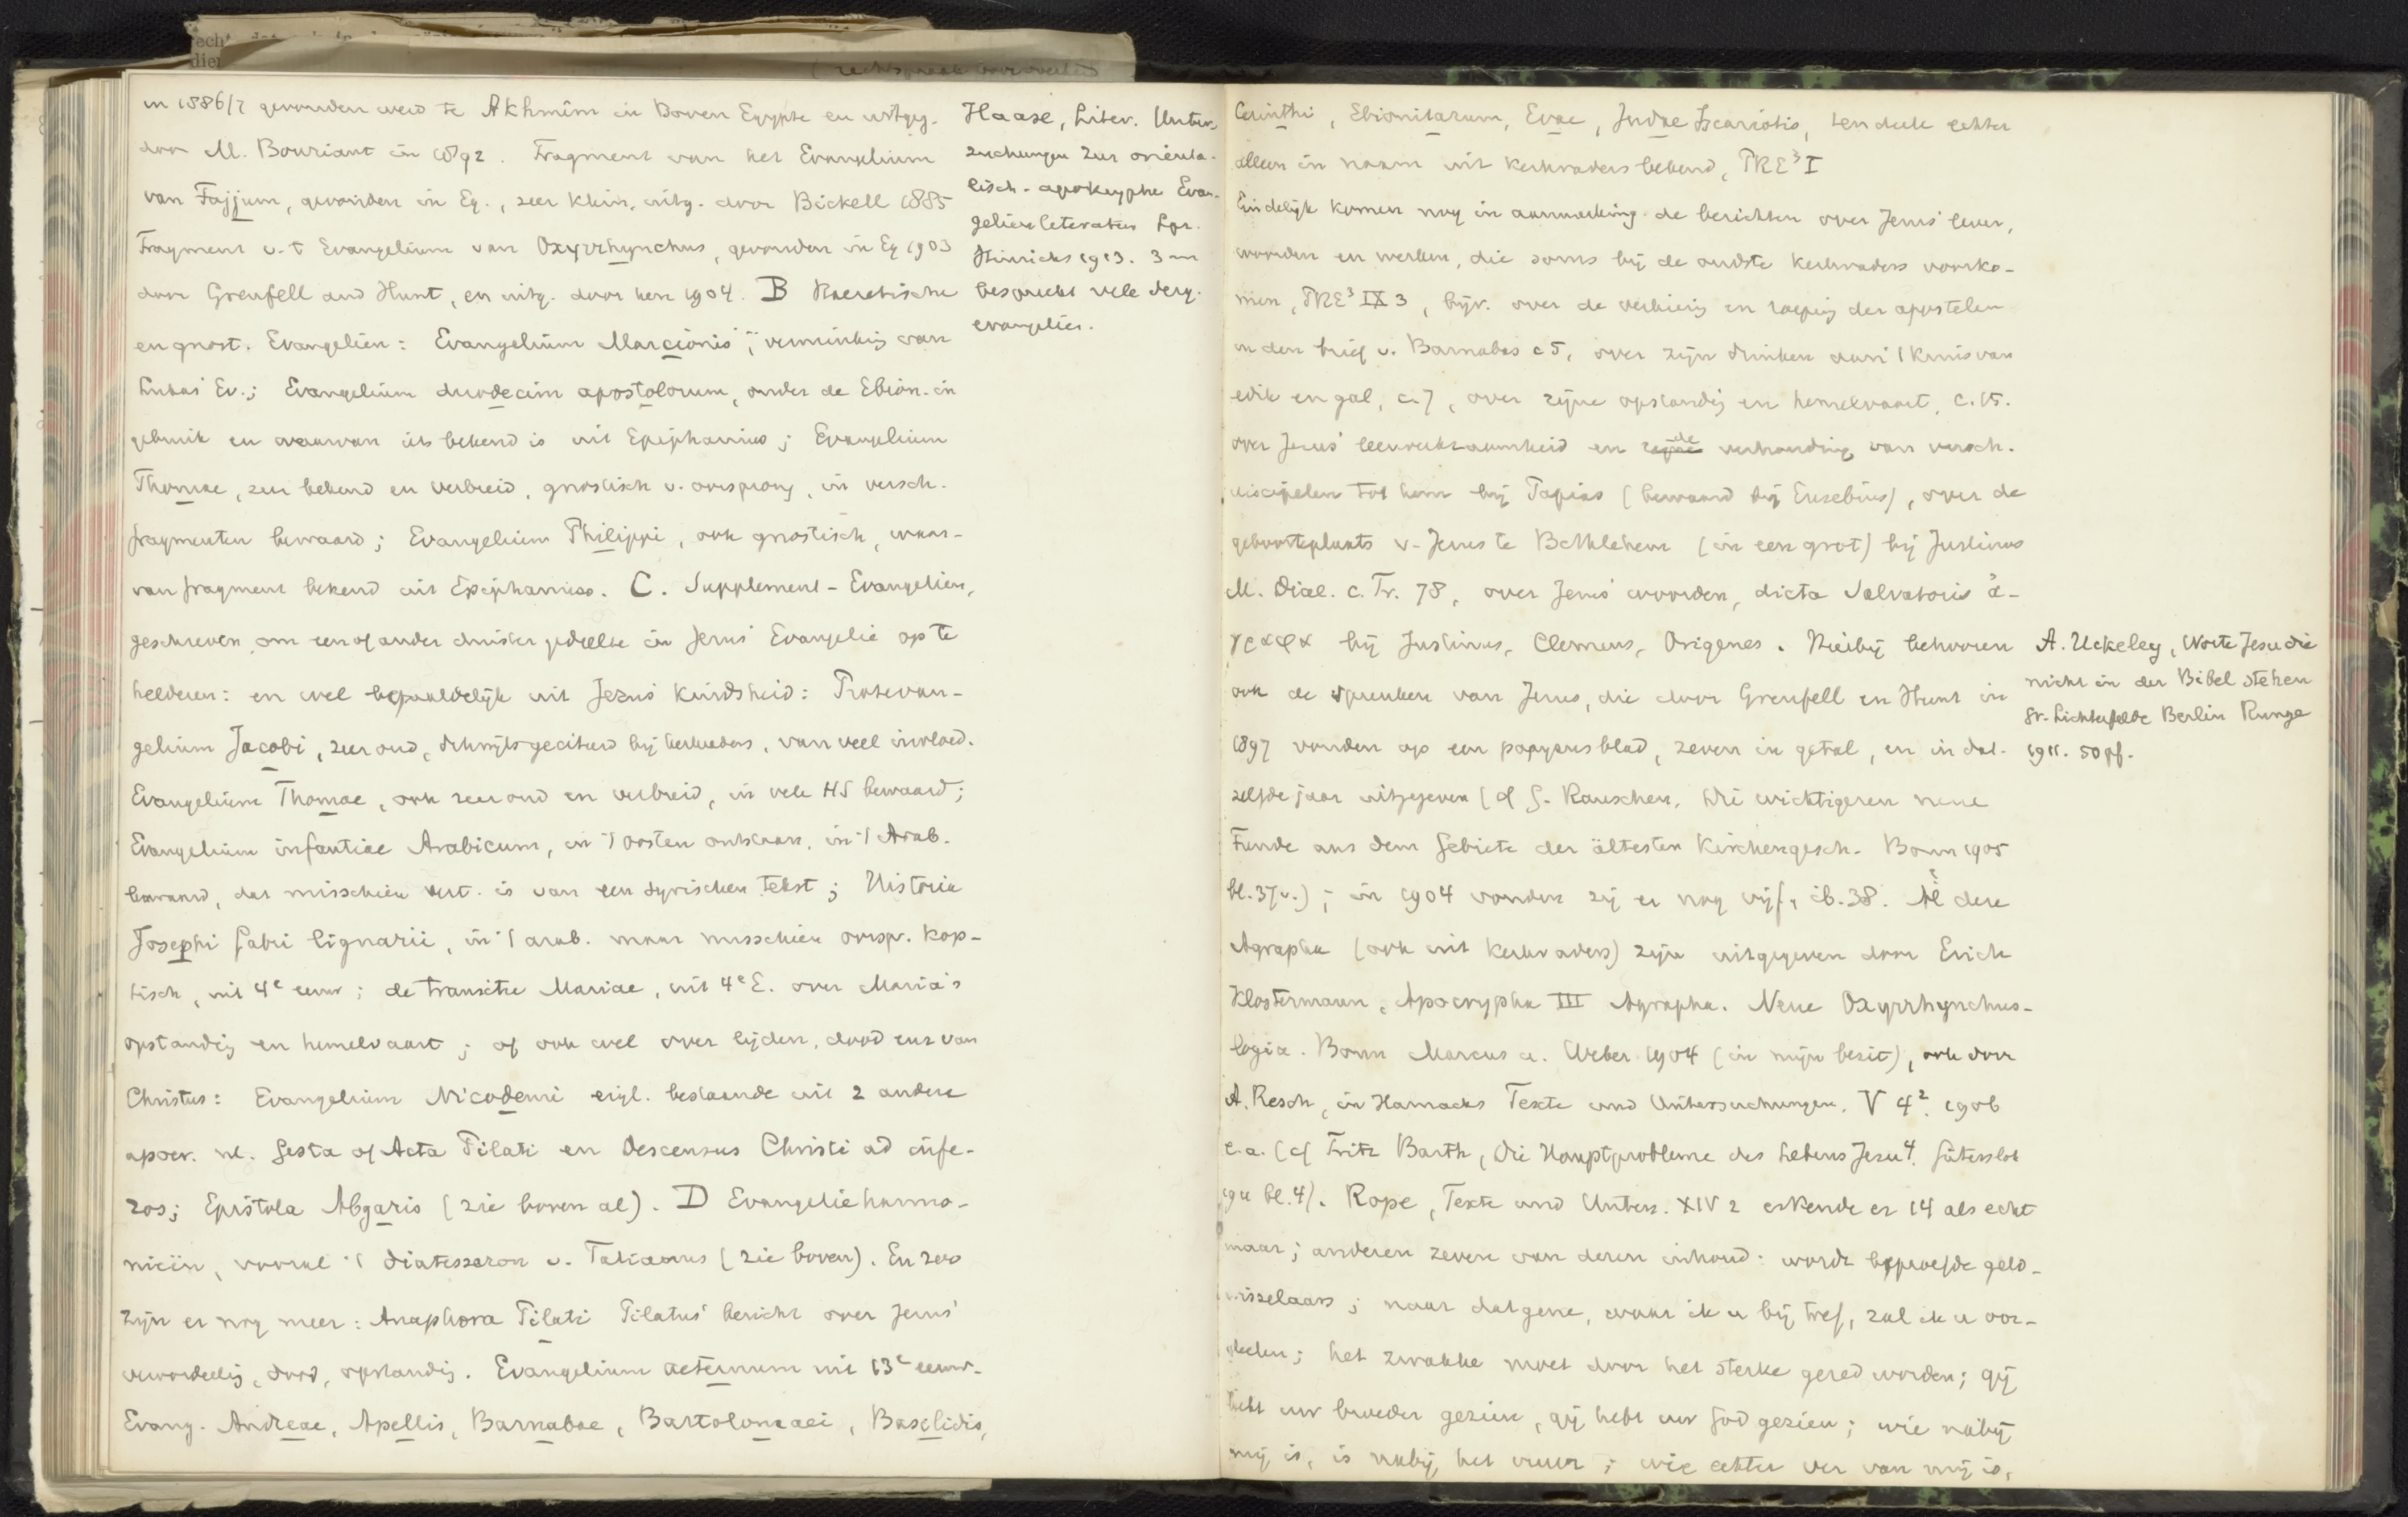 in 1886/7 gevonden werd te Akhmîm in Boven Egypte en uitgeg.
door M. Bouriant in 1892. Fragment van het Evangelium
van Fajjum, gevonden in Eg., zeer klein, uitg. door Bickell 1885
Fragment v. 't Evangelium van Oxyrrhynchus, gevonden in Eg 1903
door Grenfell and Hunt, en uitg. door hen 1904. B Haeretische
en gnost. Evangeliën: Evangelium Marcionis, verminking van
Lukas' Ev.; Evangelium duodecim apostolorum, onder de Ebion. in
gebruik en waarvan iets bekend is uit Epiphanius; Evangelium
Thomae, zeer bekend en verbreid, gnostisch v. oorsprong, in versch.
fragmenten bewaard; Evangelium Philippi, ook gnostisch, waar-
van fragment bekend uit Epiphanius. C. Supplement-Evangeliën,
geschreven om een of ander duister gedeelte in Jezus' Evangelie op te
helderen: en wel bepaaldelijk uit Jezus' kindsheid: Protevan-
gelium Jacobi, zeer oud, dikwijls geciteerd bij kerkvaders, van veel invloed.
Evangelium Thomae, ook zeer oud en verbreid, in vele HS bewaard;
Evangelium infantiae Arabicum, in 't Oosten ontstaan, in 't Arab.
bewaard, dat misschien vert. is van een Syrischen tekst; Historia
Josephi fabri lignarii, in 't arab. maar misschien oorspr. Kop-
tisch, uit 4e eeuw; de transitu Mariae, uit 4e E. over Maria's
opstanding en hemelvaart; of ook wel over lijden, dood enz van
Christus: Evangelium Nicodemi eigl. bestaande uit 2 andere
apocr. nl. Gesta of Acta Pilati en Descensus Christi ad infe-
ros; Epistola Abgaris (zie boven al). D Evangeliëharmo-
nieën, vooral 't diatessaron v. Tatianus (zie boven). En zoo
zijn er nog meer: Anaphora Pilati Pilatus' bericht over Jezus'
veroordeeling, dood, opstanding. Evangelium aeternum uit 13e eeuw.
Evang. Andreae, Apellis, Barnabae, Bartolomaei, Basilidis,
Haase, Liter. Unter-
suchungen zur orienta-
lisch-apokryphe Evan-
gelienliteratur Lpz.
Hinrichs 1913. 3 m
bespreekt vele derg.
evangeliën.
Cerinthi, Ebionitarum, Evae, Judae Iscariotis, ten deele echter
alleen in naam uit kerkvaders bekend, PRE³ I
Eindelijk komen nog in aanmerking de berichten over Jezus' leven,
woorden en werken, die soms bij de oudste kerkvaders voorko-
men, PRE³ IX 3, bijv. over de verkiezing en roeping der apostelen
in den brief v. Barnabas c 5, over zijn drinken aan 't kruis van
edik en gal, c. 7, over zijne opstanding en hemelvaart, c. 15.
over Jezus' leerwerkzaamheid en de verhouding van versch.
discipelen tot hem bij Papias (bewaard bij Eusebius), over de
geboorteplaats v. Jezus te Bethlehem (in een grot) bij Justinus
M. Dial. c. Tr. 78, over Jezus' woorden, dicta Salvatoris ἀ-
γραφα bij Justinus, Clemens, Origenes. Hierbij behooren
ook de spreuken van Jezus, die door Grenfell en Hunt in
1897 vonden op een papyrusblad, zeven in getal, en in dat-
zelfde jaar uitgegeven (cf G. Rauschen, Die wichtigeren neue
Funde aus dem Gebiete der ältesten Kirchengesch. Bonn 1905
bl. 37v.); in 1904 vonden zij er nog vijf, ib. 38. Al deze
Agrapha (ook uit kerkvaders) zijn uitgegeven door Erich
Klostermann, Apocrypha III Agrapha. Neue Oxyrrhynchus-
logia. Bonn Marcus u. Weber 1904 (in mijn bezit), ook door
A. Resch, in Harnacks Texte und Untersuchungen. V 4². 1906
e.a. (cf Fritz Barth, Die Hauptprobleme des Lebens Jesu⁴. Gütersloh
1911 bl. 4). Rope, Texte und Unters. XIV 2 erkende er 14 als echt
maar; anderen zeven van deren inhoud: wordt beproefde geld-
wisselaars; naar datgene, waar ik u bij tref, zal ik u oor-
deelen; het zwakke moet door het sterke gered worden; gij
hebt uw broeder gezien, gij hebt uw God gezien; wie nabij
mij is, is nabij het vuur; wie echter ver van mij is,
A. Uckeley, Worte Jesu die
nicht in der Bibel stehen
Gr. Lichterfelde Berlin Runge
1911. 50 pf.